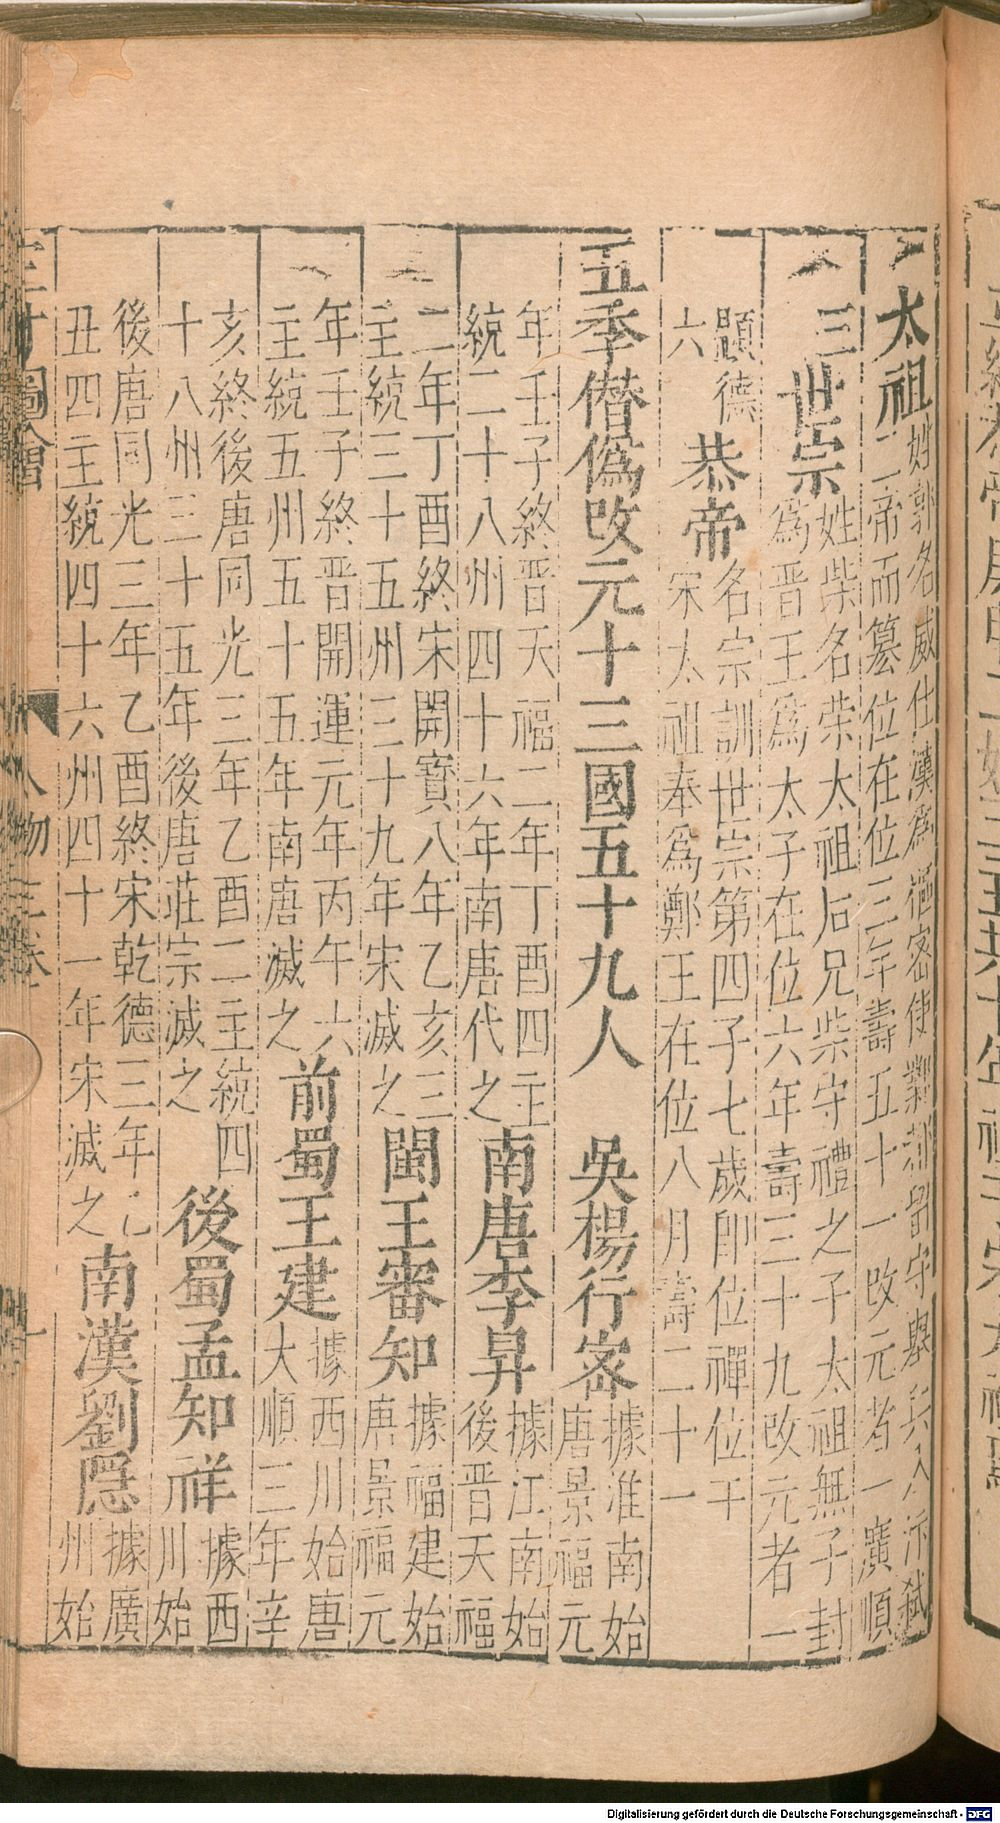 太祖姓郭名威仕漢爲樞密使鄴都留守舉兵入汴弒
二帝而篡位在位三年壽五十一改元者一廣順
世宗姓柴名荣太祖后兄柴守禮之子太祖無子封
爲晋王爲太子在位六年壽三十九改元者一
顯德
六
恭帝名宗訓世宗第四子七歲即位禪位于
宋太祖奉爲鄭王在位八月壽二十一
五季僭偽改元十三國五十九人
吳楊行密據淮南始
唐景福元
年壬子終晋天福二年丁酉四主
統二十八州四十六年南唐代之
南唐李昇據江南始
後晋天福
二年丁酉終宋開寶八年乙亥三
主統三十五州三十九年宋滅之
閩王審知據福建始
唐景福元
年壬子終晋開運元年丙午六
主統五州五十五年南唐滅之
前蜀王建據西川始唐
大順三年辛
亥終後唐同光三年乙酉二主統四
十八州三十五年後唐莊宗滅之
後蜀孟知祥據西
川始
後唐同光三年乙酉終宋乾德三年乙
丑四主統四十六州四十一年宋滅之
南漢劉隱據廣
州始
三才圖會 人物三卷
Digitalisierung gefördert durch die Deutsche Forschungsgemeinschaft - DFG